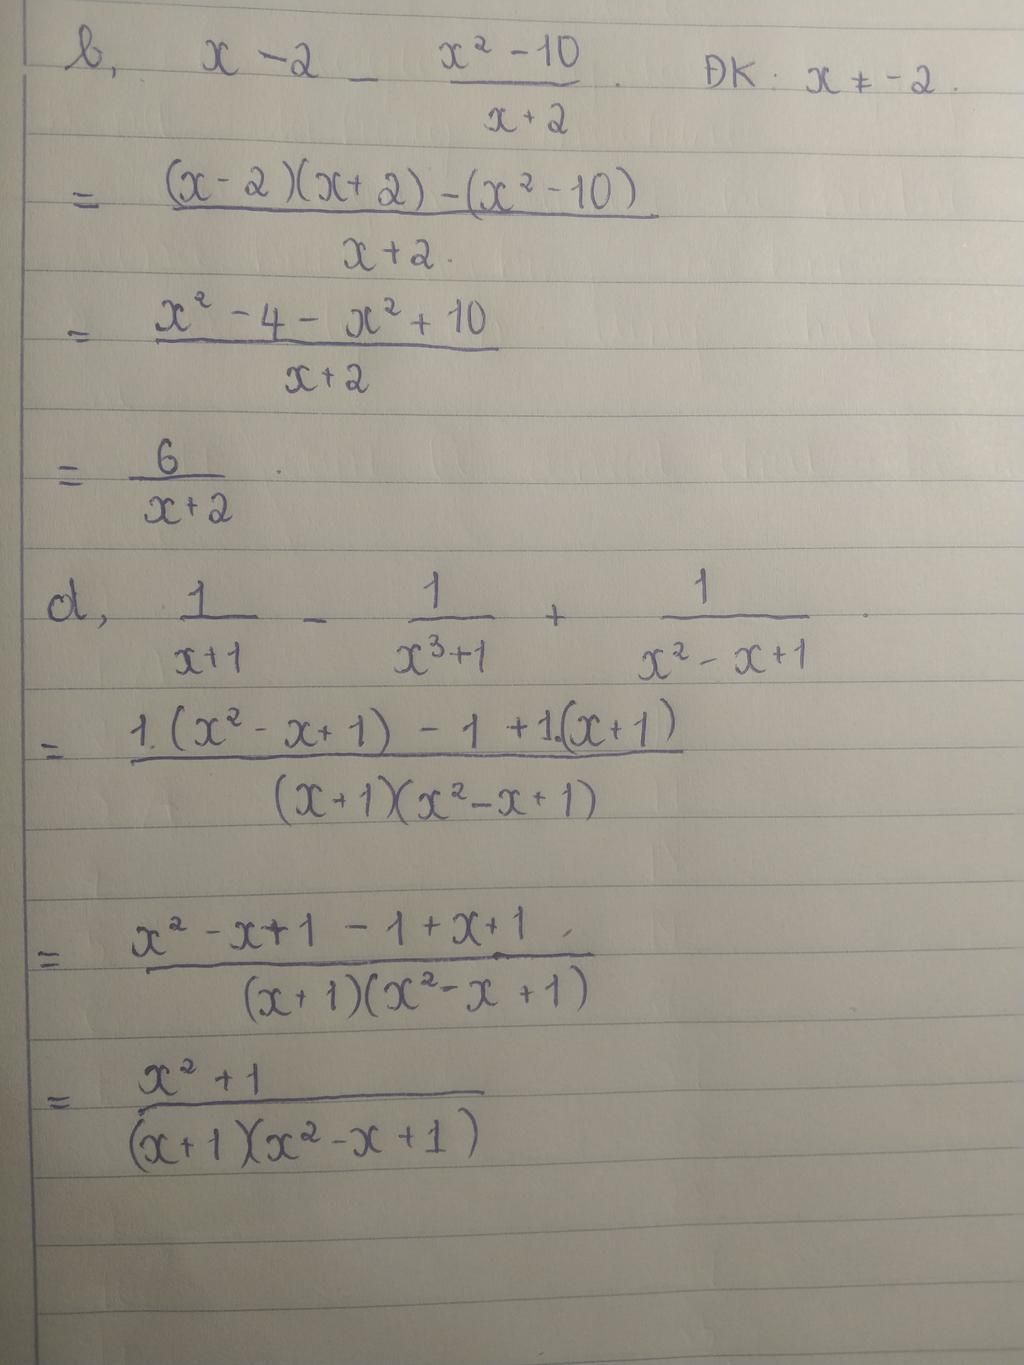 b, x - 2 - (x² - 10)/(x + 2) . ĐK: x ≠ -2.
= ((x - 2)(x + 2) - (x² - 10))/(x + 2).
= (x² - 4 - x² + 10)/(x + 2)
= 6/(x + 2) .
d, 1/(x + 1) - 1/(x³ + 1) + 1/(x² - x + 1) .
= (1.(x² - x + 1) - 1 + 1.(x + 1))/((x + 1)(x² - x + 1))
= (x² - x + 1 - 1 + x + 1)/((x + 1)(x² - x + 1))
= (x² + 1)/((x + 1)(x² - x + 1))